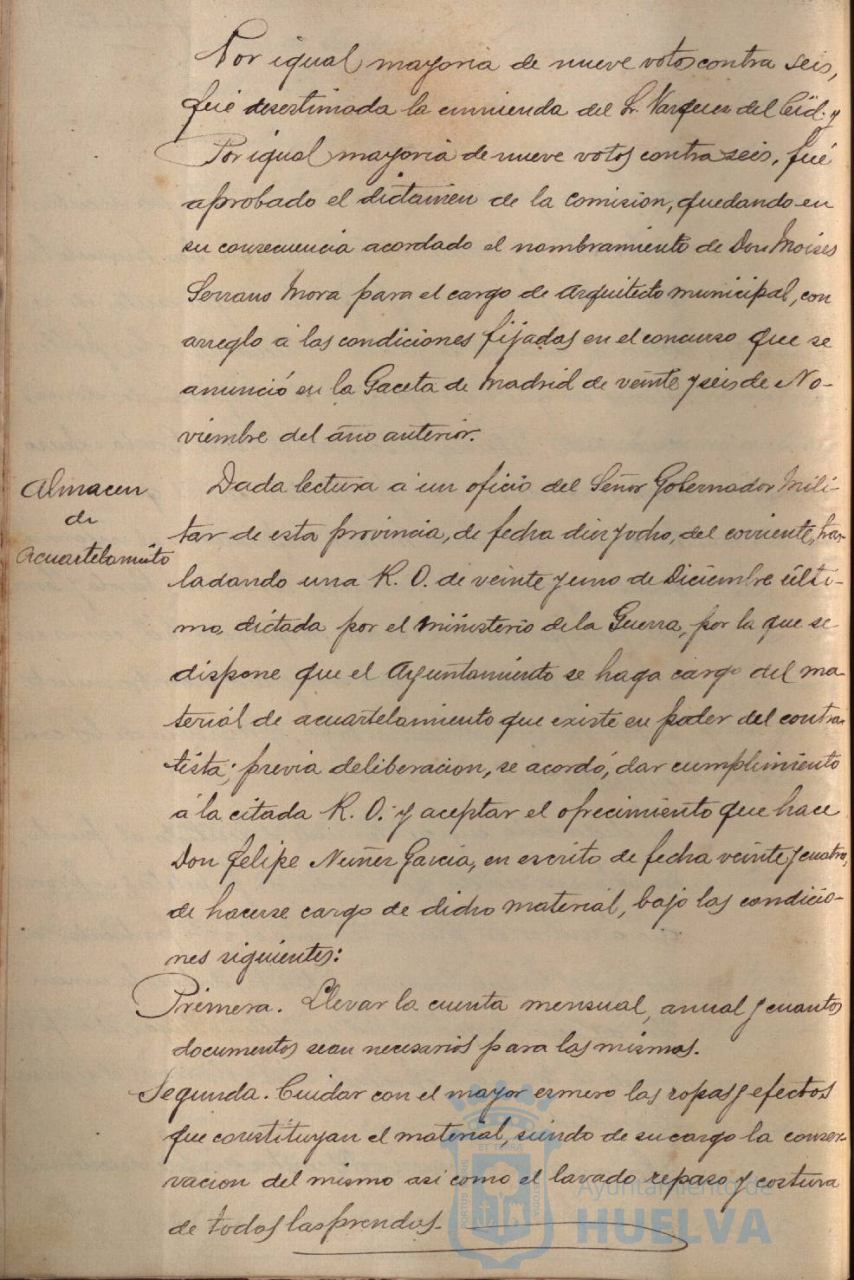 Por igual mayoria de nueve votos contra seis,
fué desestimada la enmienda del Sr. Vazquez del Cid. y
Por igual mayoria de nueve votos contra seis, fué
aprobado el dictamen de la comision, quedando en
su consecuencia acordado el nombramiento de Don Moises
Serrano Mora para el cargo de Arquitecto municipal, con
arreglo á las condiciones fijadas en el concurso que se
anunció en la Gaceta de Madrid de veinte y seis de No-
viembre del año anterior.
Almacen
de
Acuartelamiento
Dada lectura á un oficio del Señor Gobernador Mili-
tar de esta provincia, de fecha diez y ocho, del corriente, tras-
ladando una R. O. de veinte y uno de Diciembre últi-
mo, dictada por el Ministerio de la Guerra, por la que se
dispone que el Ayuntamiento se haga cargo del ma-
terial de acuartelamiento que existe en poder del contra-
tista; previa deliberacion, se acordó, dar cumplimiento
á la citada R. O. y aceptar el ofrecimiento que hace
Don Felipe Nuñez Garcia, en escrito de fecha veinte y cuatro,
de hacerse cargo de dicho material, bajo las condicio-
nes siguientes:
Primera. Llevar la cuenta mensual, anual y cuantos
documentos sean necesarios para las mismas.
Segunda. Cuidar con el mayor esmero las ropas y efectos
que constituyan el material, siendo de su cargo la conser-
vacion del mismo asi como el lavado repaso y costura
de todas las prendas.
Ayuntamiento de
HUELVA